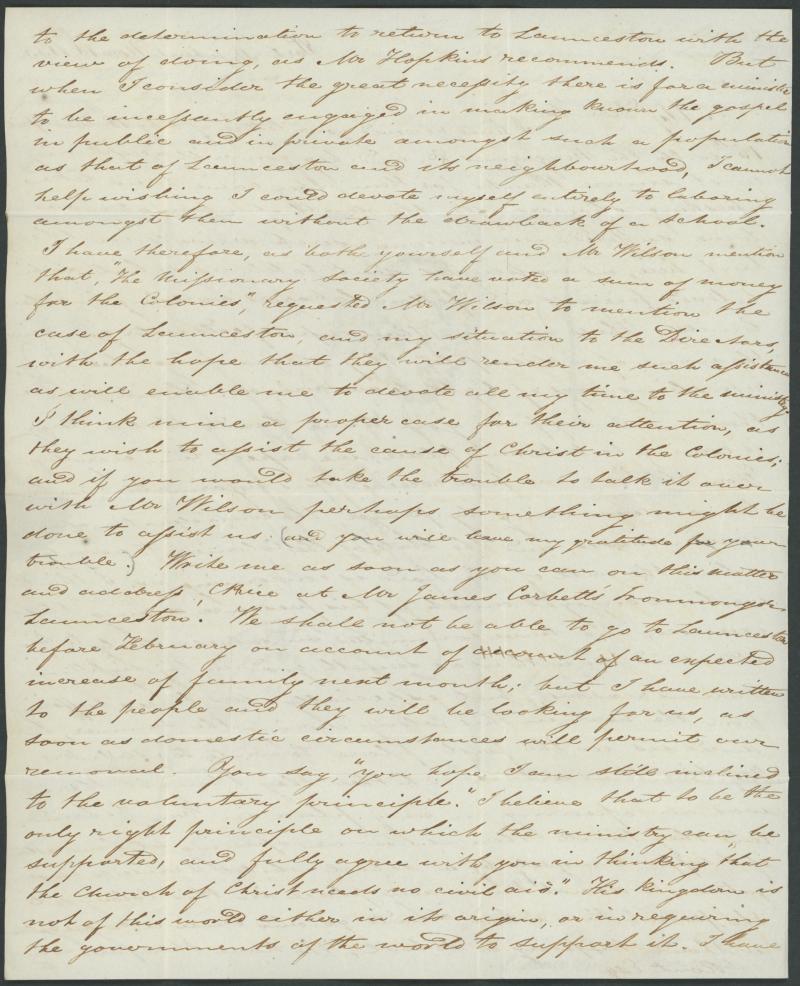 to the determination to return to Launceston with the
view of doing, as Mr Hopkins recommends. But
when I consider the great necessity there is for a minister
to be incessantly engaged in making known the gospel
in public and in private amongst such a population
as that of Launceston and its neighbourhood, I cannot
help wishing I could devote myself entirely to laboring
amongst them without the drawback of a school.
I have therefore, as both yourself and Mr Wilson mention
that, "The Missionary Society have voted a sum of money
for the Colonies", requested Mr Wilson to mention the
case of Launceston, and my situation to the Directors,
with the hope that they will render me such assistance
as will enable me to devote all my time to the ministry.
I think mine a proper case for their attention, as
they wish to assist the cause of Christ in the Colonies;
and if you would take the trouble to talk it over
with Mr Wilson perhaps something might be
done to assist us (and you will have my gratitude for your
trouble.) Write me as soon as you can on this matter
and address, at Mr James Corbett's Ironmonger
Launceston. We shall not be able to go to Launceston
before February on account of account of an expected
increase of family next month; but I have written
to the people and they will be looking for us, as
soon as domestic circumstances will permit our
removal. You say, "you hope I am still inclined
to the voluntary principle." I believe that to be the
only right principle on which the ministry can be
supported, and fully agree with you in thinking "that
the Church of Christ needs no civil aid". His kingdom is
not of this world either in its origin, or in requiring
the governments of the world to support it. I have